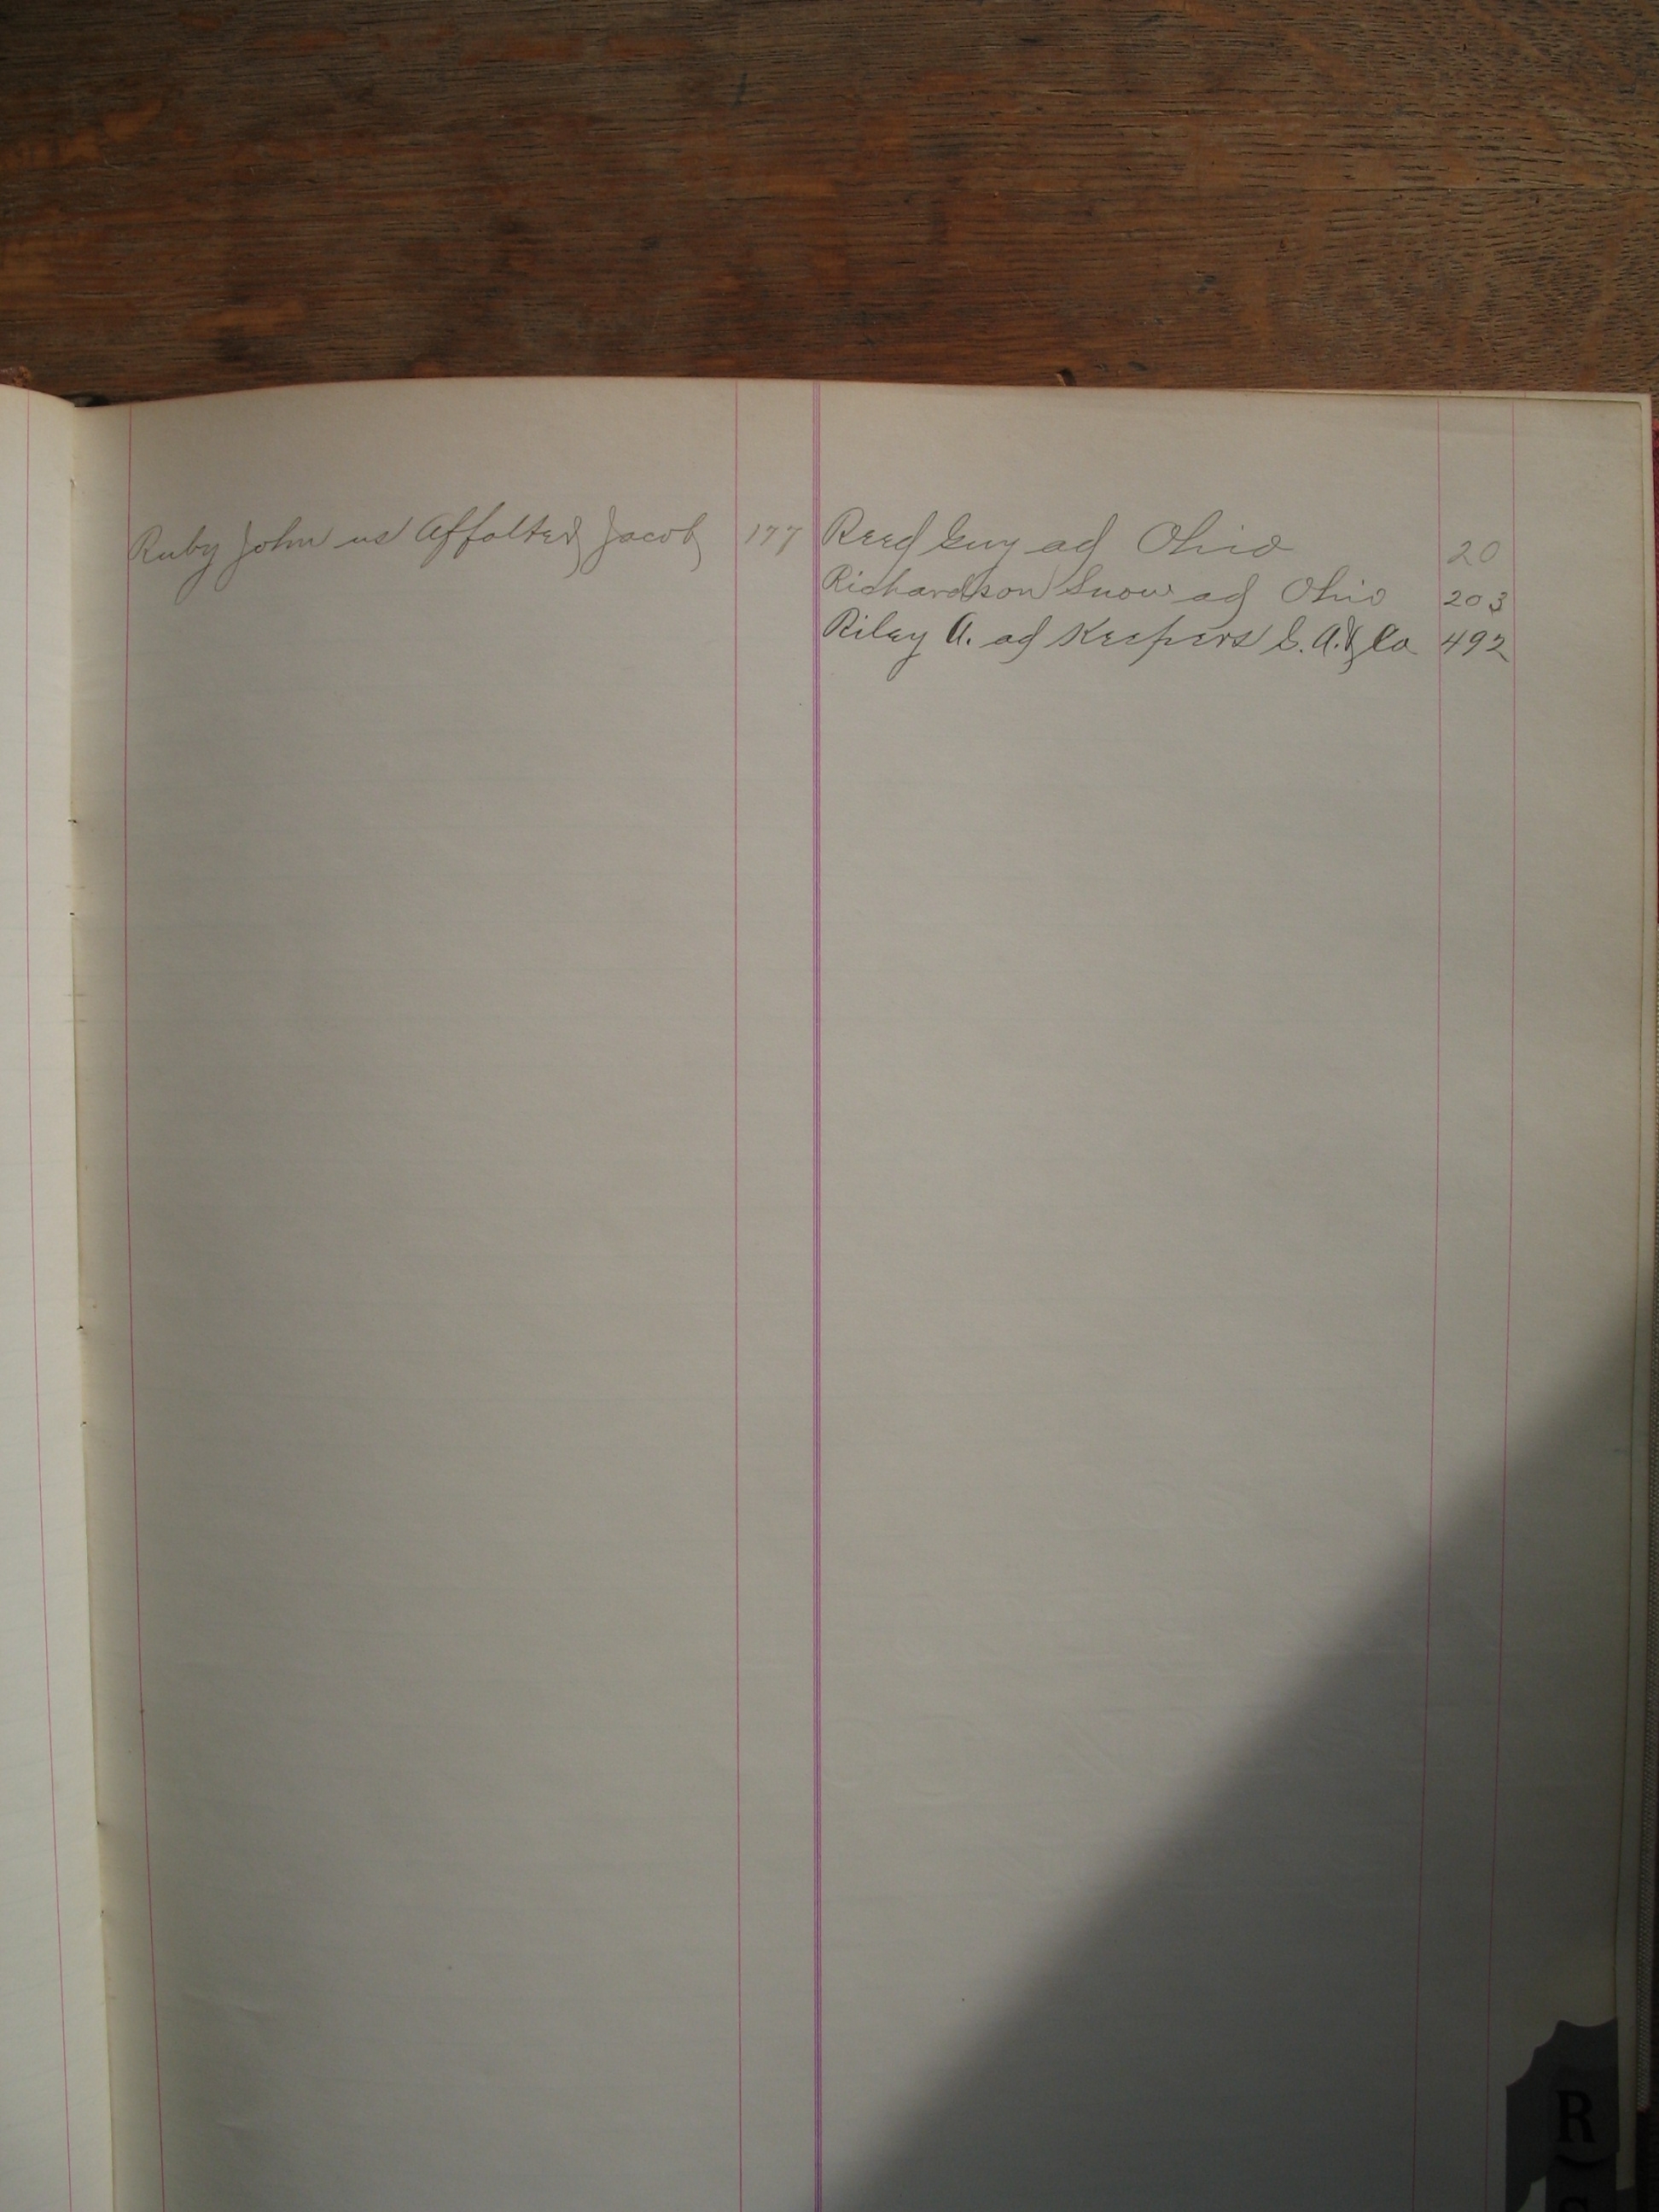 Ruby John vs Affolter Jacob 177
Reed Guy ad Ohio 20
Richardson Snow ad Ohio 203
Riley A. ad Keepers S. A. & Co 492
R
S